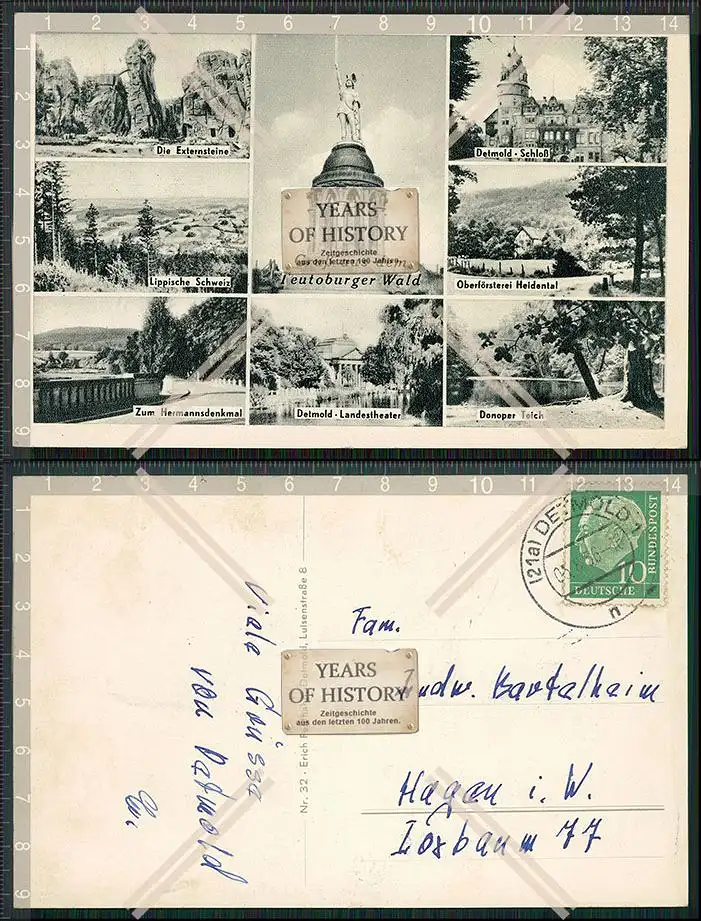 1 2 3 4 5 6 7 8 9 10 11 12 13 14
1
2
3
4
5
6
7
8
9
Die Externsteine
Detmold - Schloß
YEARS
OF HISTORY
Zeitgeschichte
aus den letzten 100 Jahren.
Teutoburger Wald
Lippische Schweiz
Oberförsterei Heidental
Zum Hermannsdenkmal
Detmold - Landestheater
Donoper Teich
1 2 3 4 5 6 7 8 9 10 11 12 13 14
1
2
3
4
5
6
7
8
9
Viele Grüsse
von Detmold
Em.
Nr. 32 · Erich
Detmold, Luisenstraße 8
(21a) DETMOLD 1
n
10
DEUTSCHE
BUNDESPOST
Fam.
YEARS
OF HISTORY
Zeitgeschichte
aus den letzten 100 Jahren.
Ludw. Bartelheim
Hagen i. W.
77